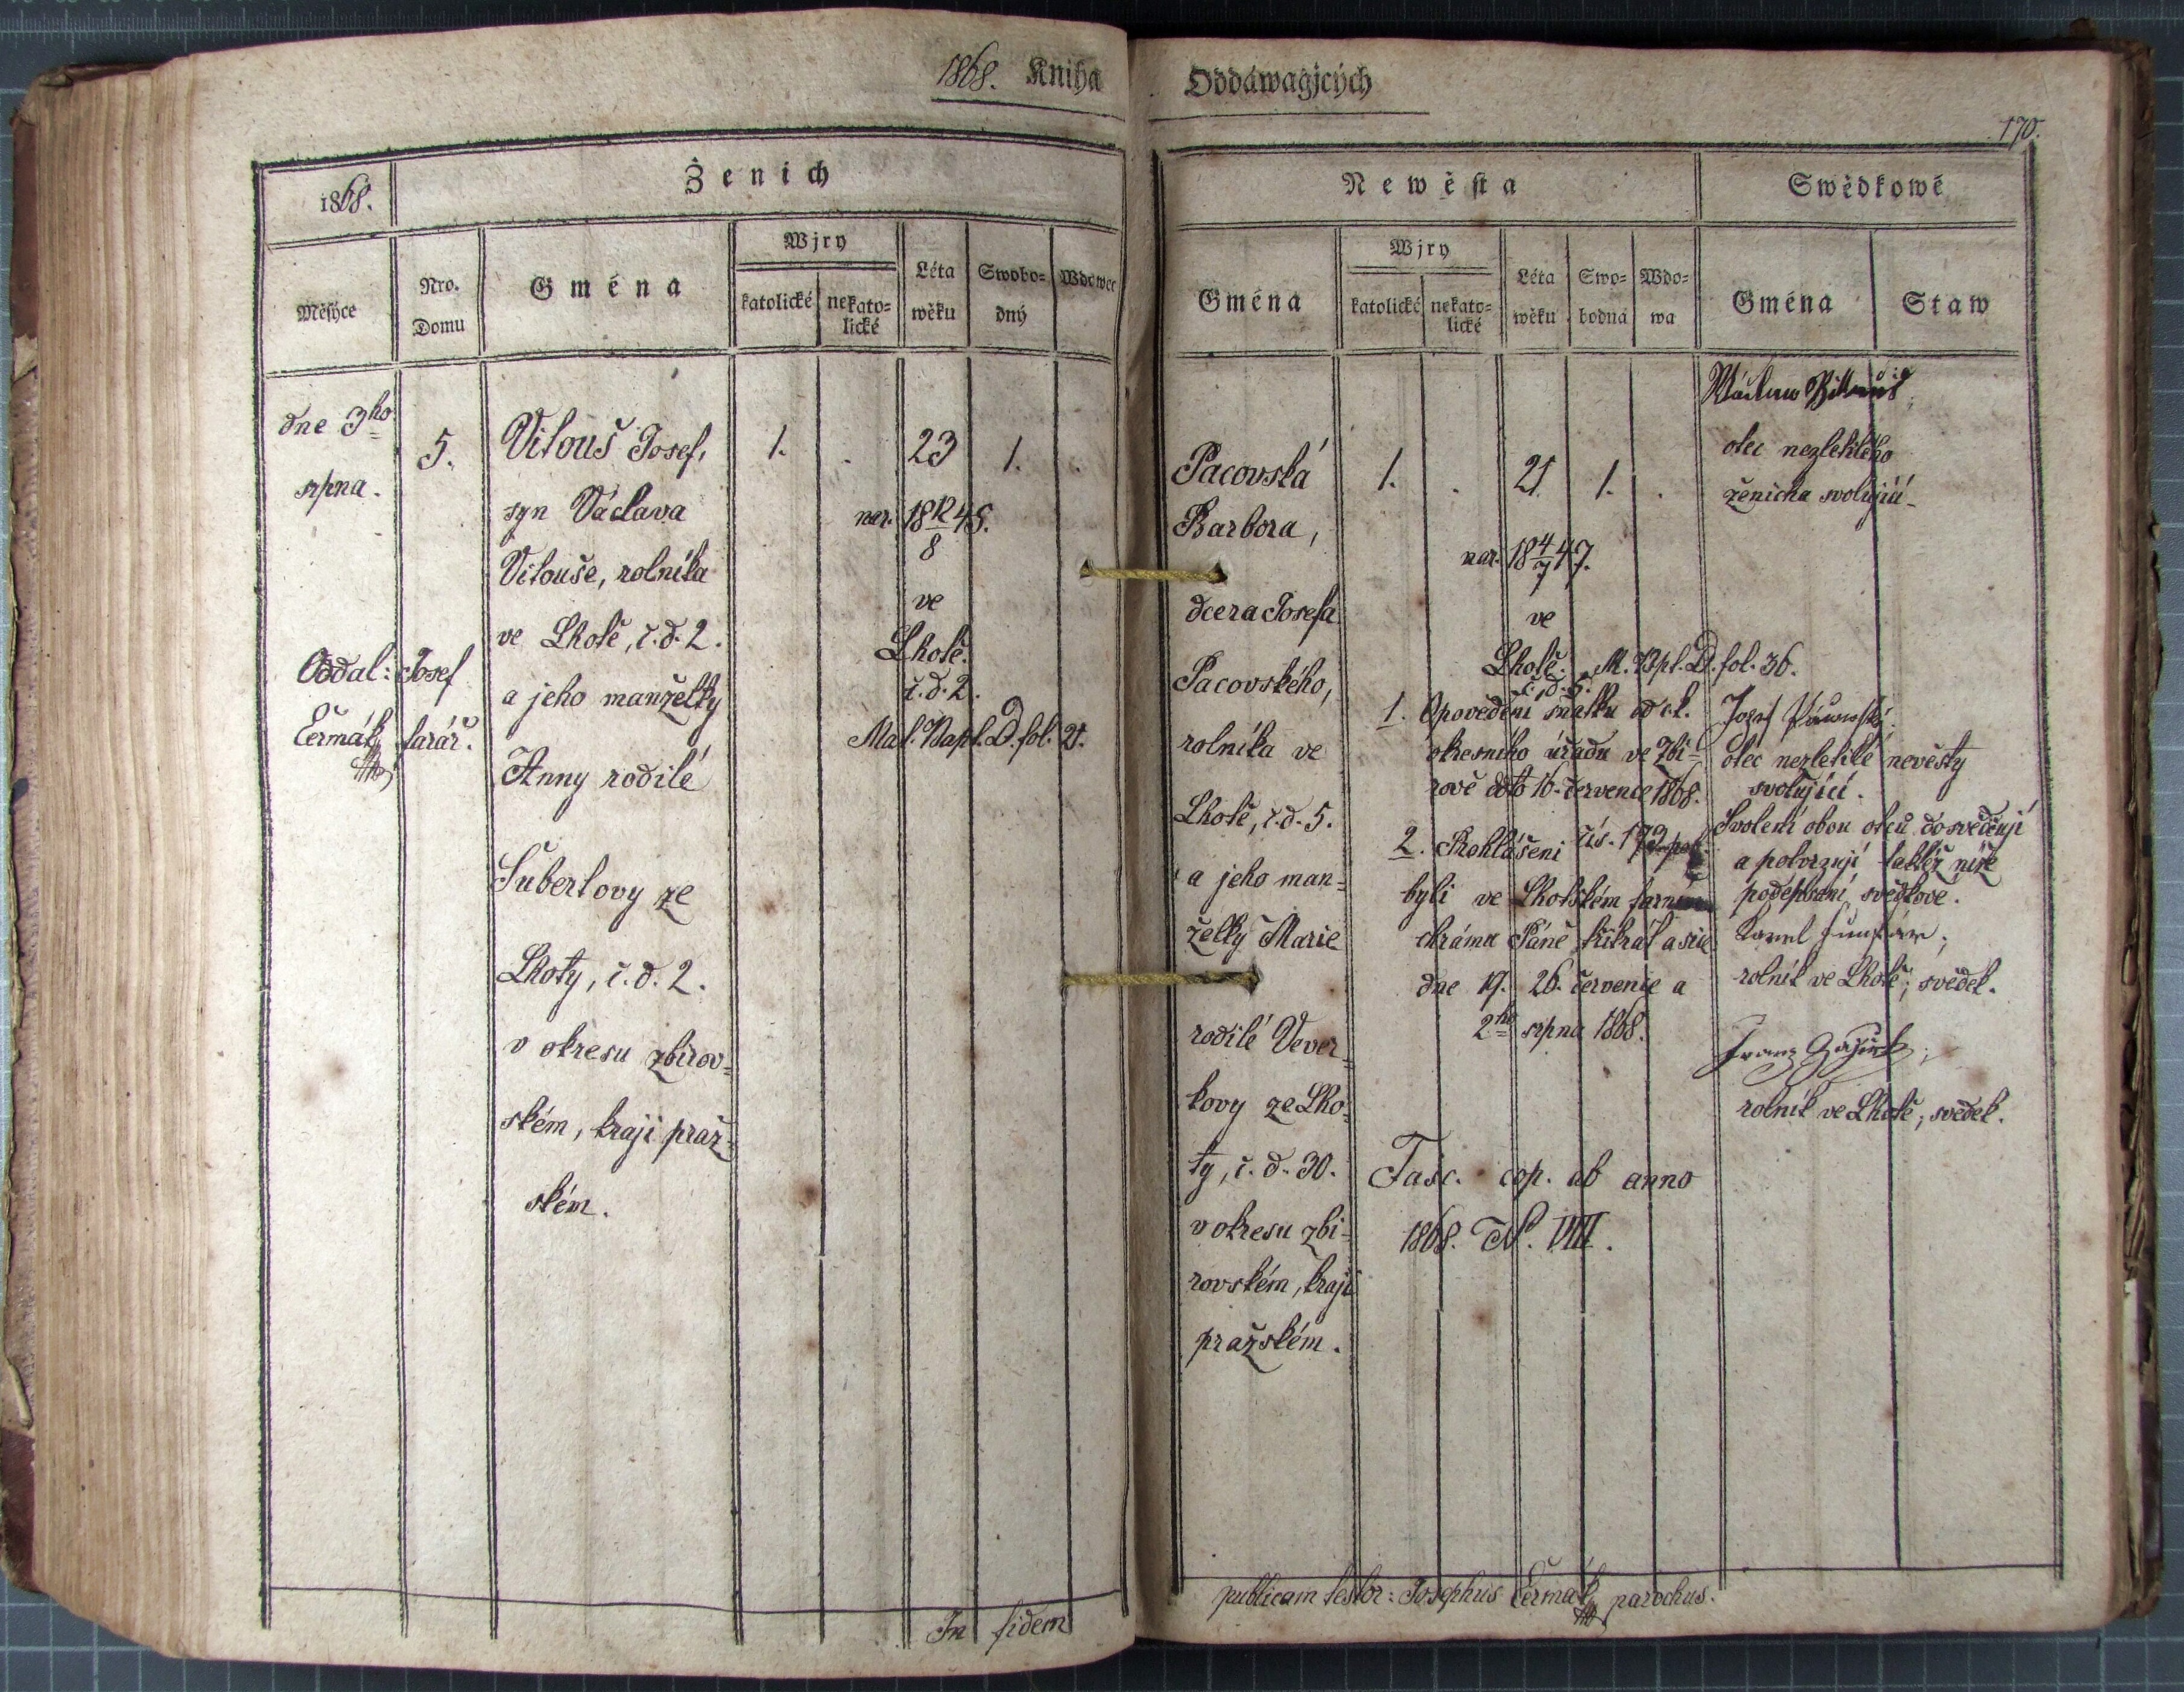 1868. Kniha
Ženich
1868.
Měsýce
Nro.
Domu
Gména
Wjry
katolické
nekato=
lické
Léta
wěku
Swobo=
dný
Wdowec
dne 3ho
srpna.
5.
Vitouš Josef,
1.
.
23
1.
.
syn Václava
nar. 18 12/8 45.
Vitouše, rolníka
ve
ve Lhotě, č. d. 2.
Lhotě.
Oddal: Josef
a jeho manželky
č. d. 2.
Čermák, farář.
Mat. Bapt. D. fol. 21.
Anny rodilé
Šubertovy ze
Lhoty, č. d. 2.
v okresu zbirov=
ském, kraji praž=
ském.
In fidem
Oddáwagjcých
170.
Newěsta
Swědkowé
Gména
Wjry
katolické
nekato=
lické
Léta
wěku
Swo=
bodná
Wdo=
wa
Gména
Staw
Pacovská
1.
.
21
1.
.
Barbora,
nar. 18 4/7 47.
dcera Josefa
ve
Pacovského,
Lhotě. M. Bpt. D. fol. 36.
č. d. 5.
rolníka ve
Lhotě, č. d. 5.
a jeho man=
želky Marie
rodilé Vever=
kovy ze Lho=
ty, č. d. 30.
v okresu zbi=
rovském, kraji
pražském.
1. Opovědění sňatku od c. k.
okresního úřadu ve Zbi=
rově ddto 16. července 1868.
čís. 173
2. Prohlášeni
byli ve Lhotském farním
chrámu Páně třikrát a sice
dne 19. 26. července a
2ho srpna 1868.
Fasc. cop. ab anno
1868. N. VIII.
Václaw
otec nezletilého
ženicha svolující
Josef
otec nezletilé nevěsty
svolující.
Svolení obou otců dosvědčují
a potvrzují taktéž níže
podepsaní svědkové.
Karel
rolník ve Lhotě, svědek.
Franz
rolník ve Lhotě, svědek.
publicam testor: Josephus Čermák, parochus.